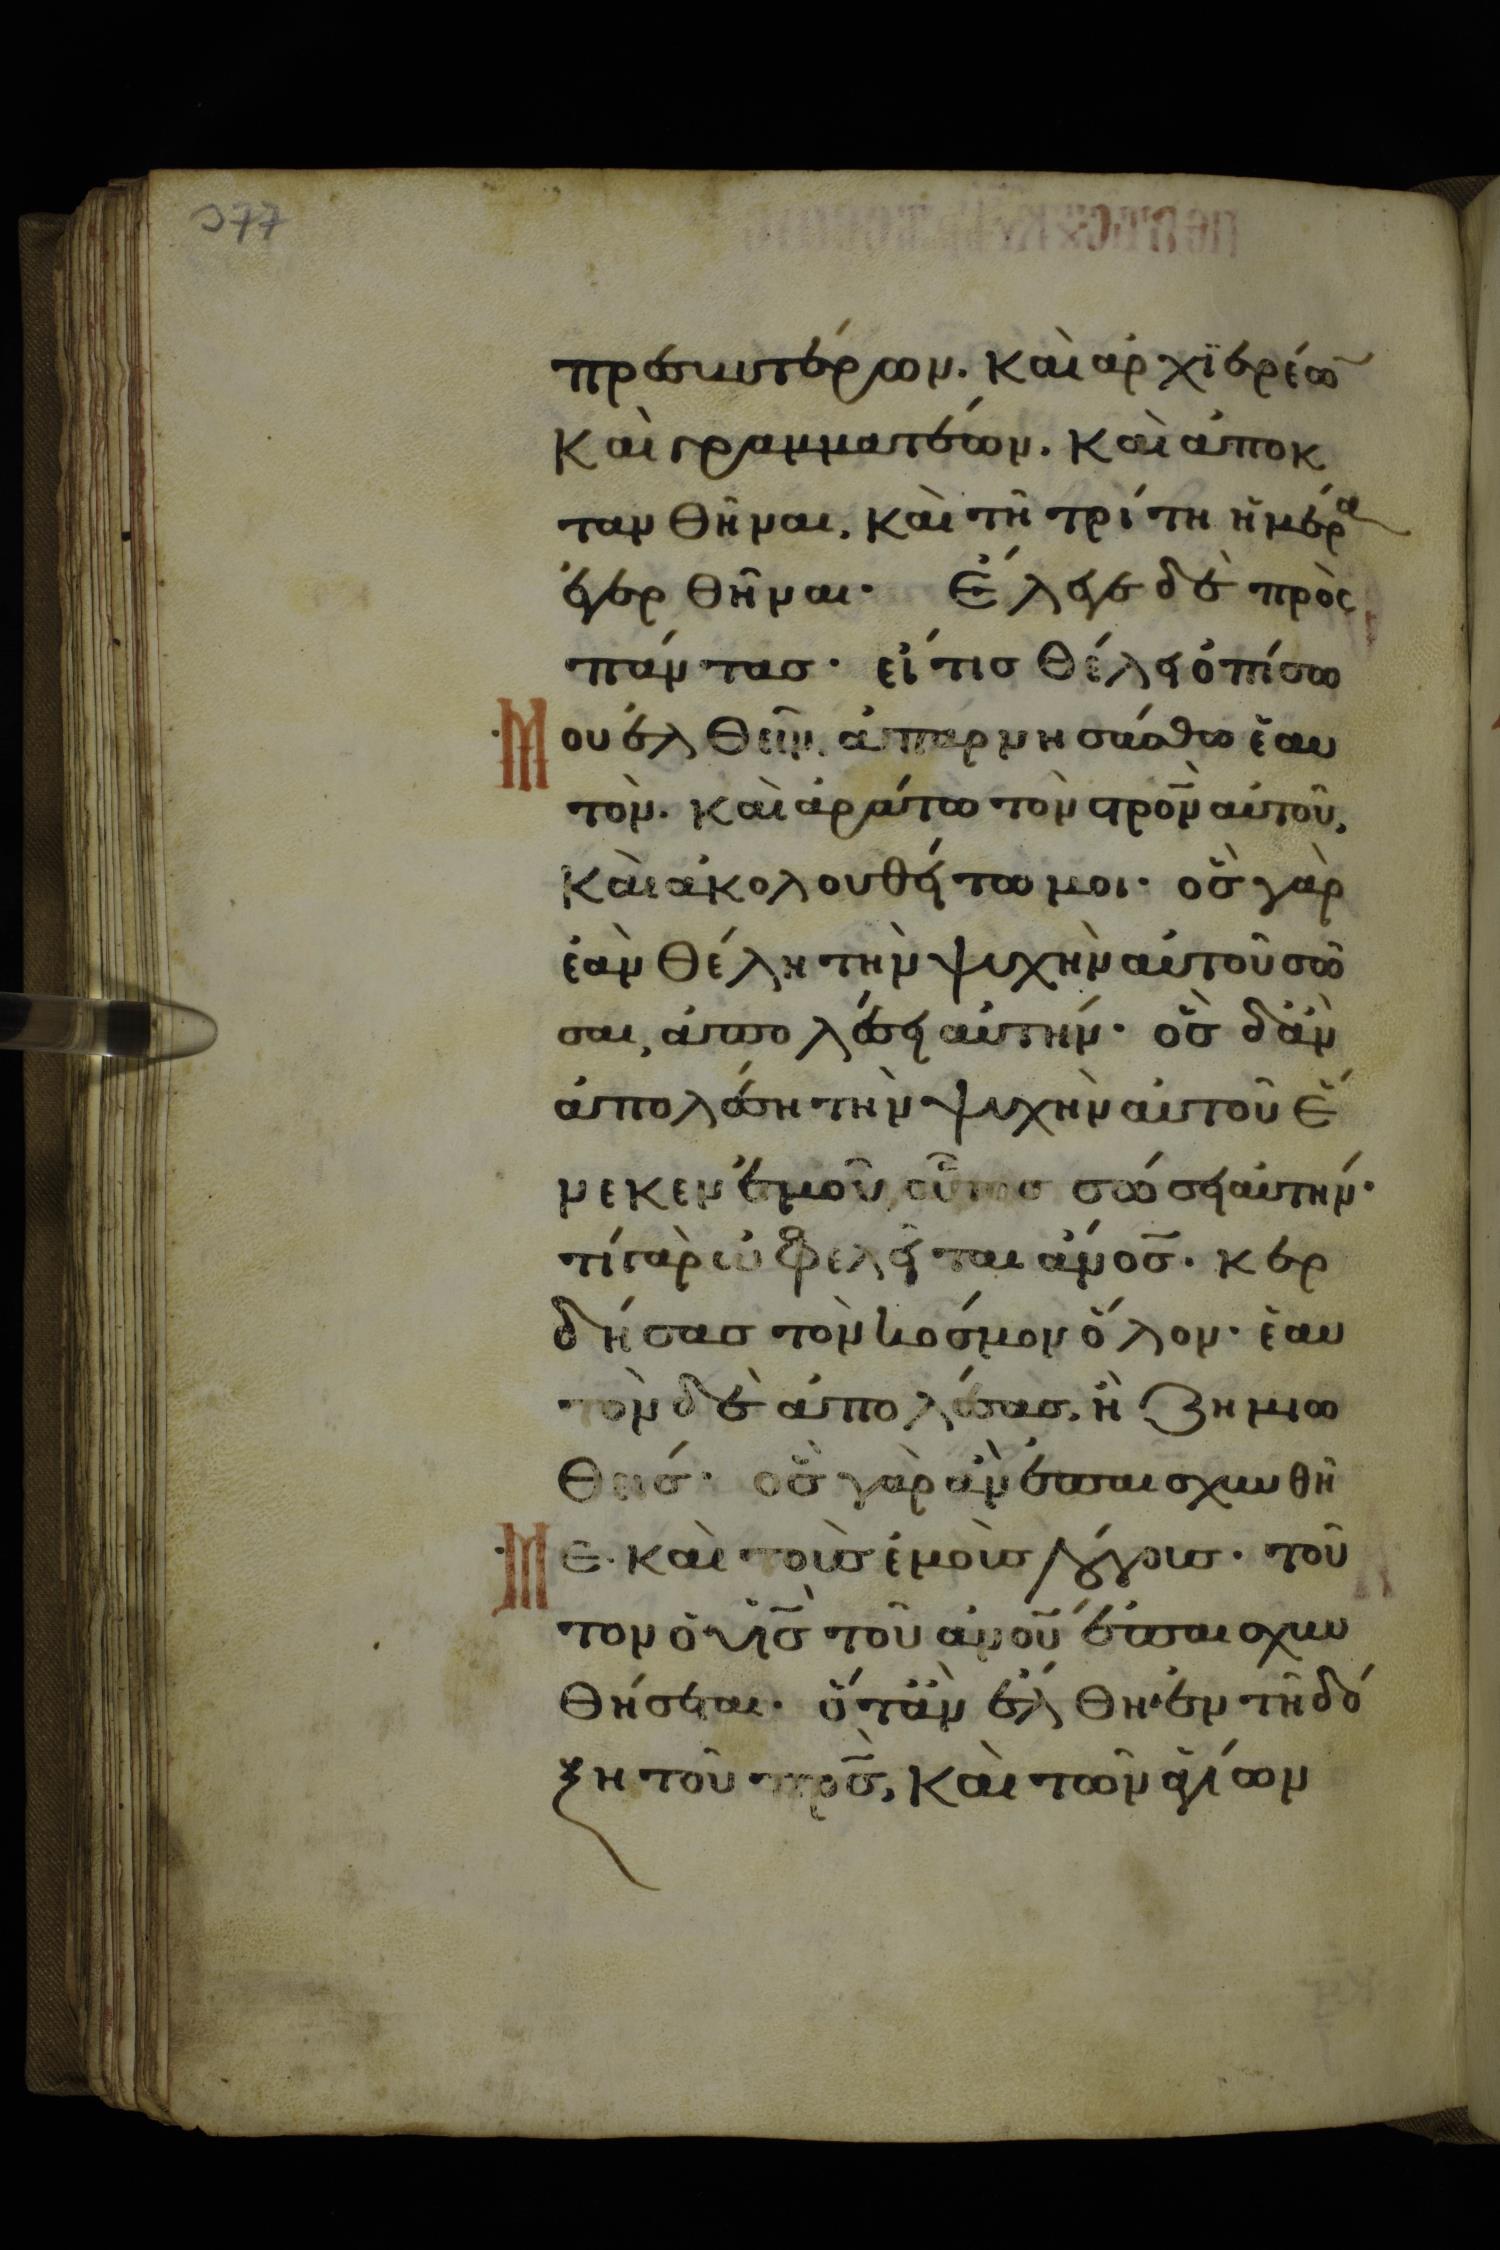 377
πρεσβυτέρων. καὶ ἀρχϊερέω̅
καὶ γραμματέων. καὶ ἀποκ
τανθῆναι, καὶ τῆ τρίτη ἡμέρα
ἐγερθῆναι· Ἔλεγε δὲ πρὸς
πάντασ· εἴ τισ θέλει ὀπίσω
Μου ἐλθεῖν, ἀπαρνησάσθω ἑαυ
τὸν. καὶ ἀράτω τὸν στρο̅ν αὐτοῦ,
καὶ ἀκολουθείτω μοι· ὃσ γὰρ
ἐὰν θέλη τὴν ψυχὴν αὐτοῦ σῶ
σαι, ἀπολέσει αὐτήν· ὃσ δἂν
ἀπολέση τὴν ψυχὴν αὐτοῦ ἕ
νεκεν ἐμοῦ, οὗτοσ σώσει αὐτήν·
τί γὰρ ὠφελεῖται ἄνο̅σ· κερ
δήσασ τὸν κόσμον ὅλον· ἑαυ
τὸν δὲ ἀπολέσασ, ἢ ζημιω
θείσ· ὃσ γὰρ ἂν ἐπαισχυνθῆ
Με· καὶ τοὺσ ἐμοὺσ λόγουσ· τοῦ
τον ὁ υἱ̅σ τοῦ ἀνο̅υ ἐπαισχυν
θήσεται· ὅταν ἔλθη ἐν τῆ δό
ξη τοῦ πρ̅σ, καὶ τῶν ἁγίων